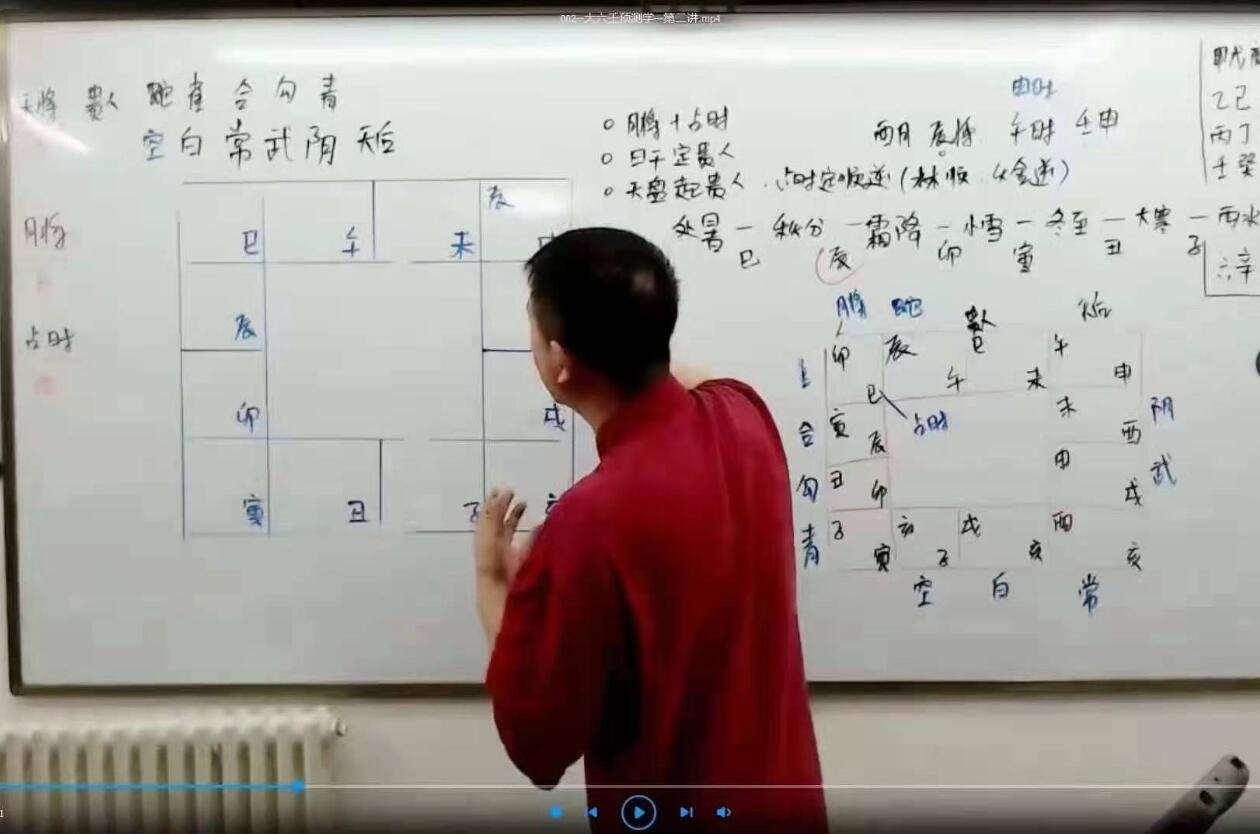 002--大六壬预测学--第二讲.mp4
天将 贵人 蛇 雀 合 勾 青
空 白 常 武 阴 天后
月将
占时
巳 午 未
辰
辰
卯 戌
寅 丑
申时
月将+占时
日干定贵人
天盘起贵人.占时定顺逆
酉月 辰将 午时 壬申
处暑一秋分一霜降一小雪一冬至一大寒一雨水
巳 辰 卯 寅 丑 子
甲戊
乙己
丙丁
壬癸
六辛
月将 蛇 贵人 天后
卯 辰 巳 午
巳 午 未 申
占时
合 寅 辰 未 酉 阴
勾 丑 卯 申 戌 武
青 子 亥 戌 酉
寅 子 亥 亥
空 白 常